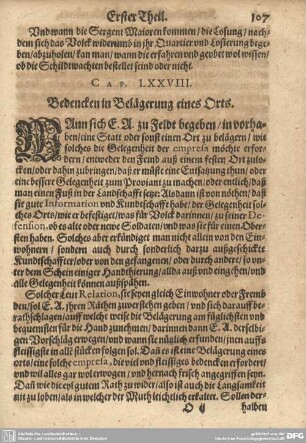 Erster Theil. 107
Vnd wann die Sergent Maioren kommen / die Losung / nach-
dem sich das Volck widerumb in jhr Quartier vnd Losierung bege-
ben / abzuholen / kan man / wann die erfahren vnd geübet wol wissen /
ob die Schildwachten bestellet seind oder nicht.
CAP. LXXVIII.
Bedencken in Belägerung eines Orts.
WAnn sich E. A. zu Feldt begeben / in vorha-
ben / eine Statt oder sonst einen Ort zu belägern / wie
solches die Gelegenheit der empresa möchte erfor-
dern / entweder den Feind auß einem festen Ort zulo-
cken / oder dahin zubringen / daß er müßt eine Entsatzung thun / oder
eine bessere Gelegenheit zum Proviant zu machen / oder entlich / daß
man einen Fuß in der Landschafft setze: Als dann ist von nöthen / daß
sie gute Information vnd Kundtschafft habe / der Gelegenheit sol-
ches Orts / wie er befestiget / was für Volck darinnen / zu seiner De-
fension, ob es alt oder newe Soldaten / vnd was sie für einen Ober-
sten haben. Solches aber erkündiget man nicht allein von den Ein-
wohnern / sondern auch durch sonderlich darzu außgeschickte
Kundschaffter / oder von den gefangenen / oder durch andere / so vn-
ter dem Schein einiger Handthierung / allda auß vnd eingehen / vnd
alle Gelegenheit können außspähen.
Solcher Leut Relation, sie seyen gleich Einwohner oder Fremb-
den / sol E. A. jhren Räthen zuverstehen geben / vnd sich darauff be-
rathschlagen / auff welche weise die Belägerung am füglichsten vnd
bequemsten für die Hand zunehmen / darinnen dann E. A. derselbi-
gen Vorschläg erwegen / vnd wann sie nützlich erfunden / jnen auffs
fleissigste in alle stücken folgen sol. Dañ es ist eine Belägerung eines
orts / eine solche empresa, die viel vnd fleissiges bedencken erfordert
vnd wil alles gar wol erwogen / vnd hernach frisch angegriffen seyn.
Dañ wie die vol gutem Rath zu wider / also ist auch die Langsamkeit
nit zu loben / als in welcher der Muth leichtlich erkaltet. Sollen der-
O ij halben